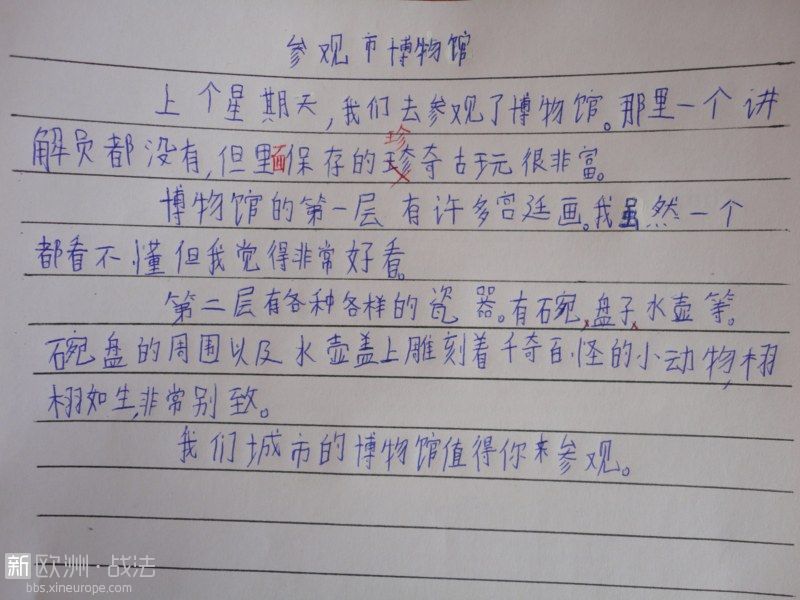 参观市博物馆
上个星期天,我们去参观了博物馆。那里一个讲
解员都没有,但里面保存的珍奇古玩很非富。
博物馆的第一层有许多宫廷画。我虽然一个
都看不懂但我觉得非常好看。
第二层有各种各样的瓷器。有碗、盘子、水壶等。
碗盘的周围以及水壶盖上雕刻着千奇百怪的小动物,栩
栩如生,非常别致。
我们城市的博物馆值得你来参观。
新欧洲·战法
bbs.xineurope.com